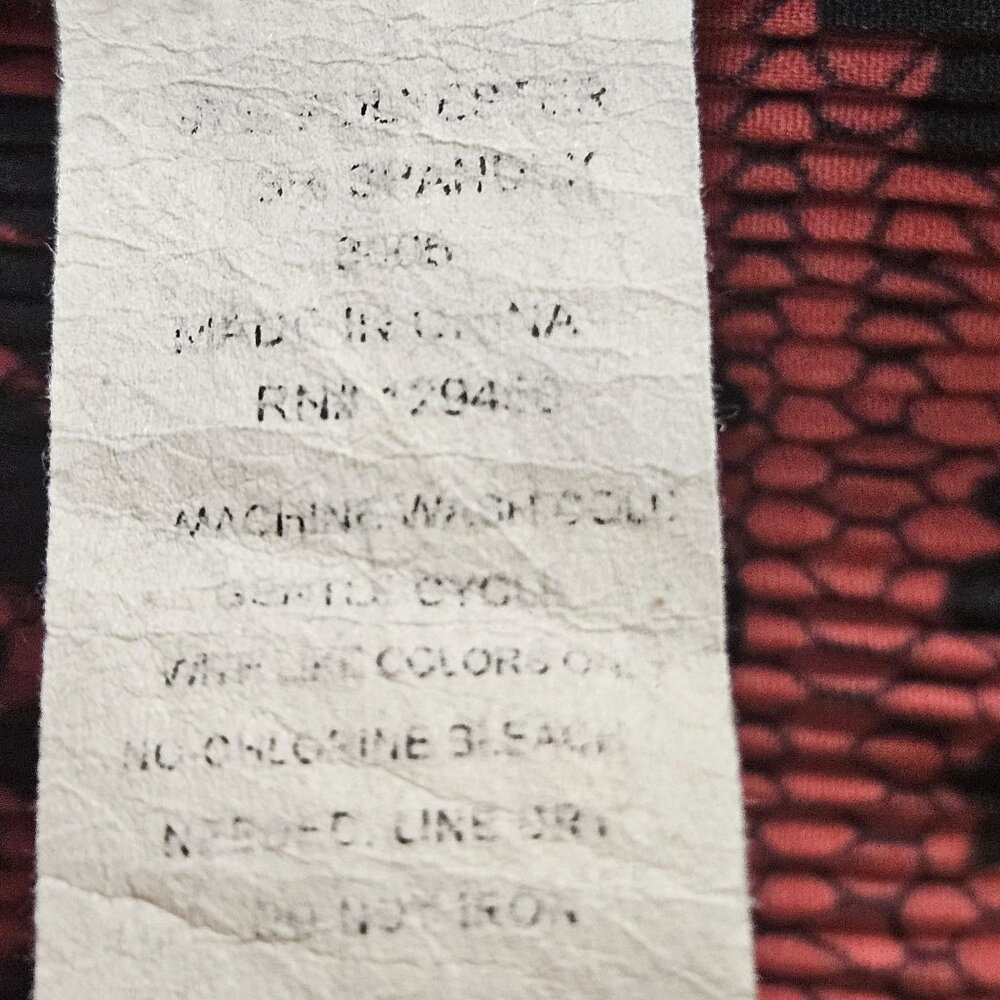 POLYESTER
SPANDEX
MADE IN CHINA
RN#
MACHINE WASH COLD
GENTLE CYCLE
WITH LIKE COLORS ONLY
NO CHLORINE BLEACH
NEEDED. LINE DRY
DO NOT IRON